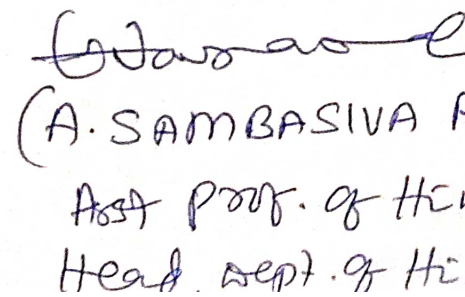 (A. SAMBASIVA
Asst Prof. of Hi
Head, Dept. of Hi